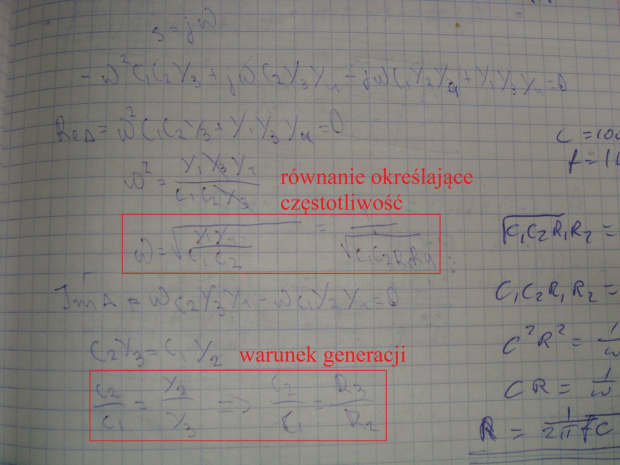 s = jω
-ω²C₁C₂Y₃ + jωC₂Y₃Y₄ - jωC₁Y₂Y₄ + Y₁Y₃Y₄ = 0
ReΔ = ω²C₁C₂Y₃ + Y₁Y₃Y₄ = 0
ω² = Y₁Y₃Y₄ / C₁C₂Y₃
równanie określające
częstotliwość
ω = √(Y₁Y₄ / C₁C₂) = 1 / √(C₁C₂R₁R₄)
ImΔ = ωC₂Y₃Y₄ - ωC₁Y₂Y₄ = 0
C₂Y₃ = C₁Y₂
warunek generacji
C₂/C₁ = Y₂/Y₃ => C₂/C₁ = R₃/R₂
C = 100
f = 1
√(C₁C₂R₁R₂) =
C₁C₂R₁R₂ =
C²R² = 1/ω
CR = 1/ω
R = 1/2πfC